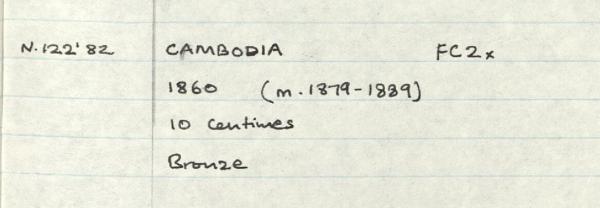 N.122'82 CAMBODIA FC2x
1860 (m.1879-1889)
10 Centimes
Bronze